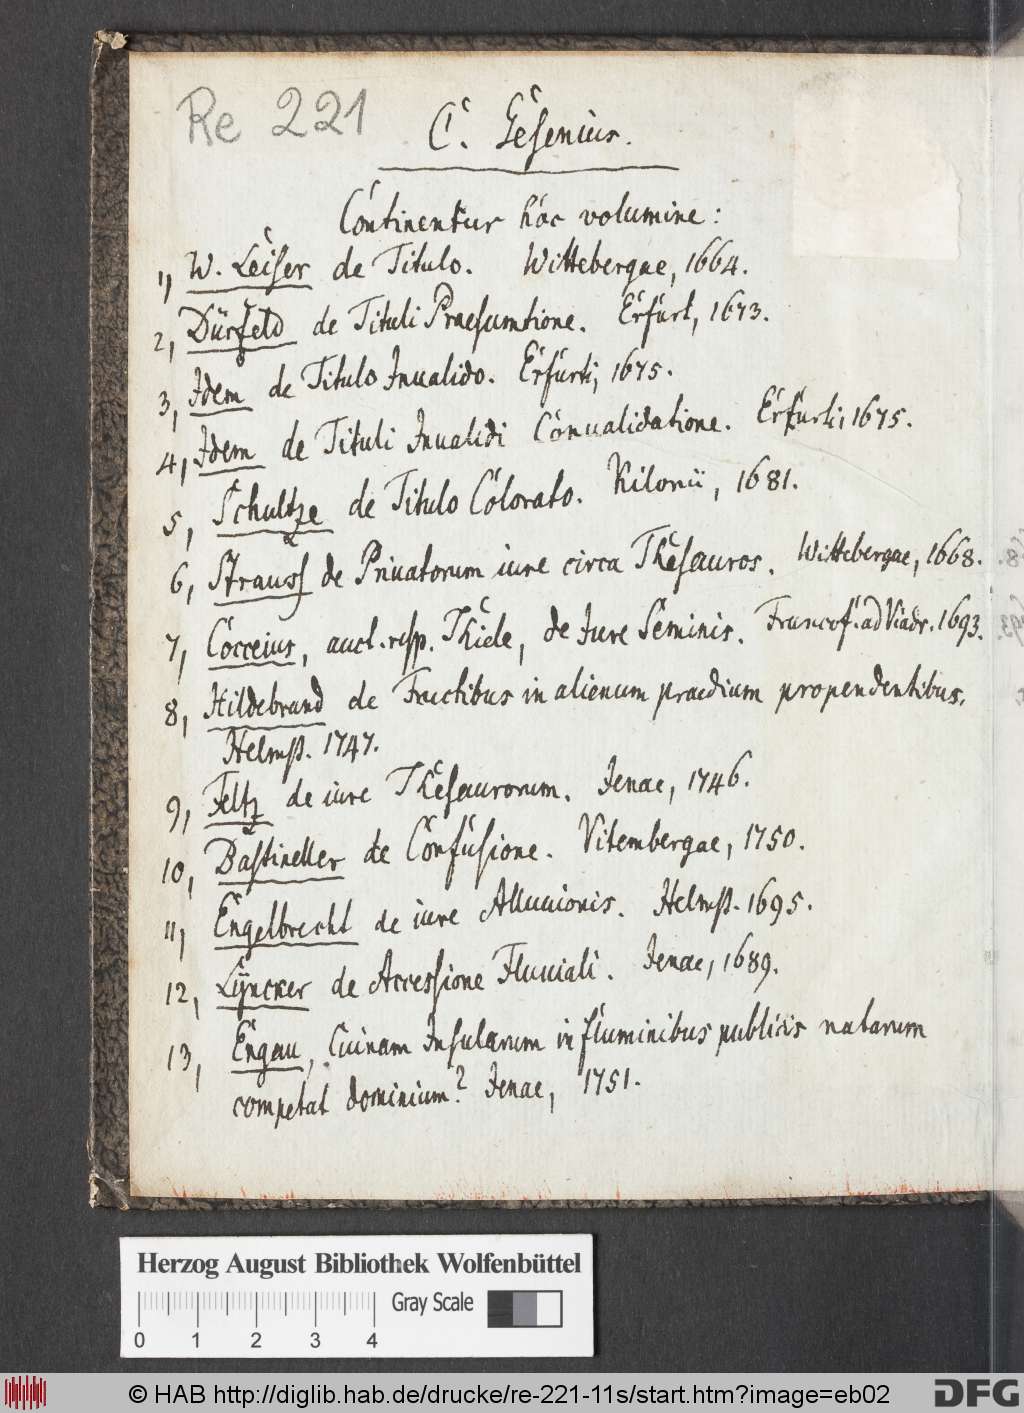 Re 221
C. Gesenius.
Continentur hoc volumine:
1, W. Leiser de Titulo. Wittebergae, 1664.
2, Dürfeld de Tituli Praesumtione. Erfurt, 1673.
3, Idem de Titulo Inualido. Erfurti, 1675.
4, Idem de Tituli Inualidi Conualidatione. Erfurti, 1675.
5, Schultze de Titulo Colorato. Kilonii, 1681.
6, Strauss de Priuatorum iure circa Thesauros. Wittebergae, 1668.
7, Cocceius, auct. resp. Thiele, de Jure Seminis. Francof. ad Viadr. 1693.
8, Hildebrand de Fructibus in alienum praedium propendentibus.
Helmst. 1747.
9, Feltz de iure Thesaurorum. Jenae, 1746.
10, Bastineller de Confusione. Vitembergae, 1750.
11, Engelbrecht de iure Alluuionis. Helmst. 1695.
12, Lyncker de Accessione Fluuiali. Jenae, 1689.
13, Engau, Cuinam Insularum in fluminibus publicis natarum
competat dominium? Jenae, 1751.
Herzog August Bibliothek Wolfenbüttel
Gray Scale
0 1 2 3 4
© HAB http://diglib.hab.de/drucke/re-221-11s/start.htm?image=eb02
DFG